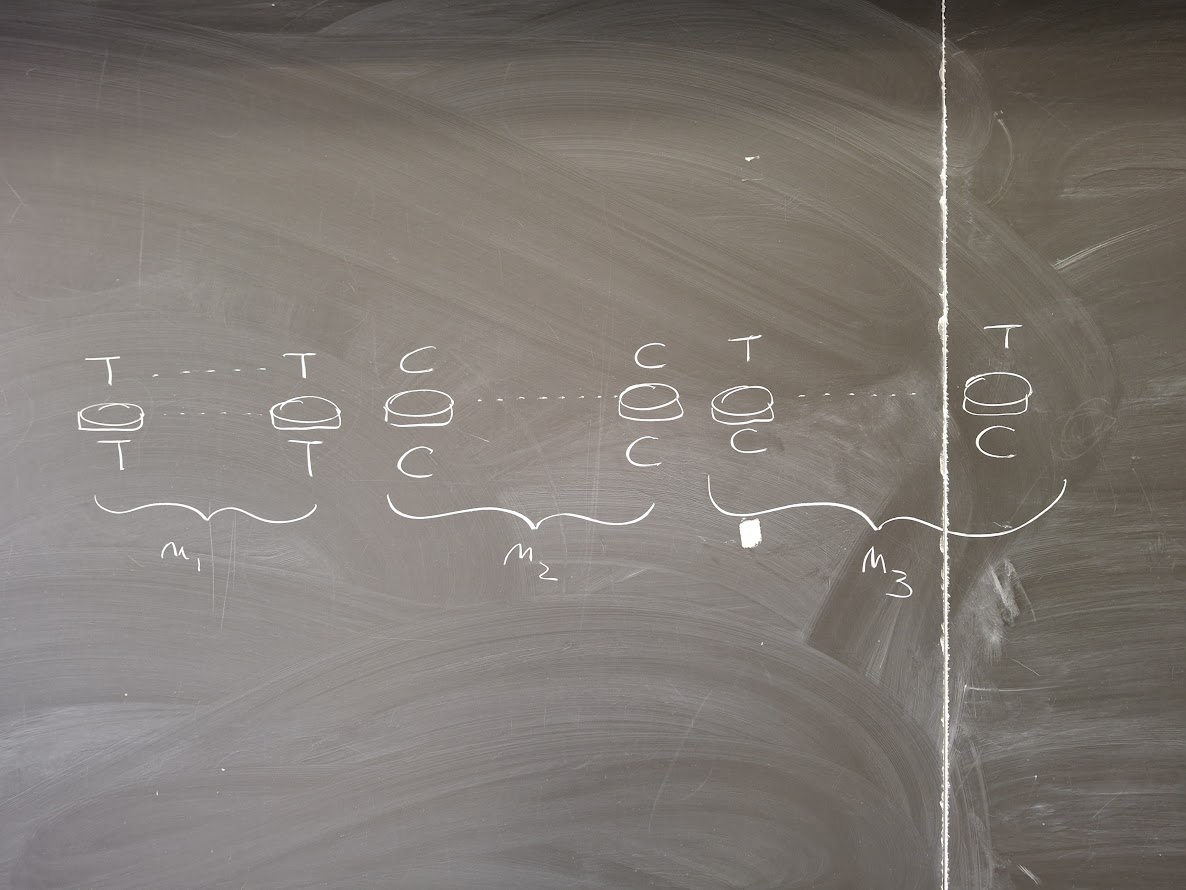 T ...... T C C T T
T T C C C C
n₁ n₂ n₃